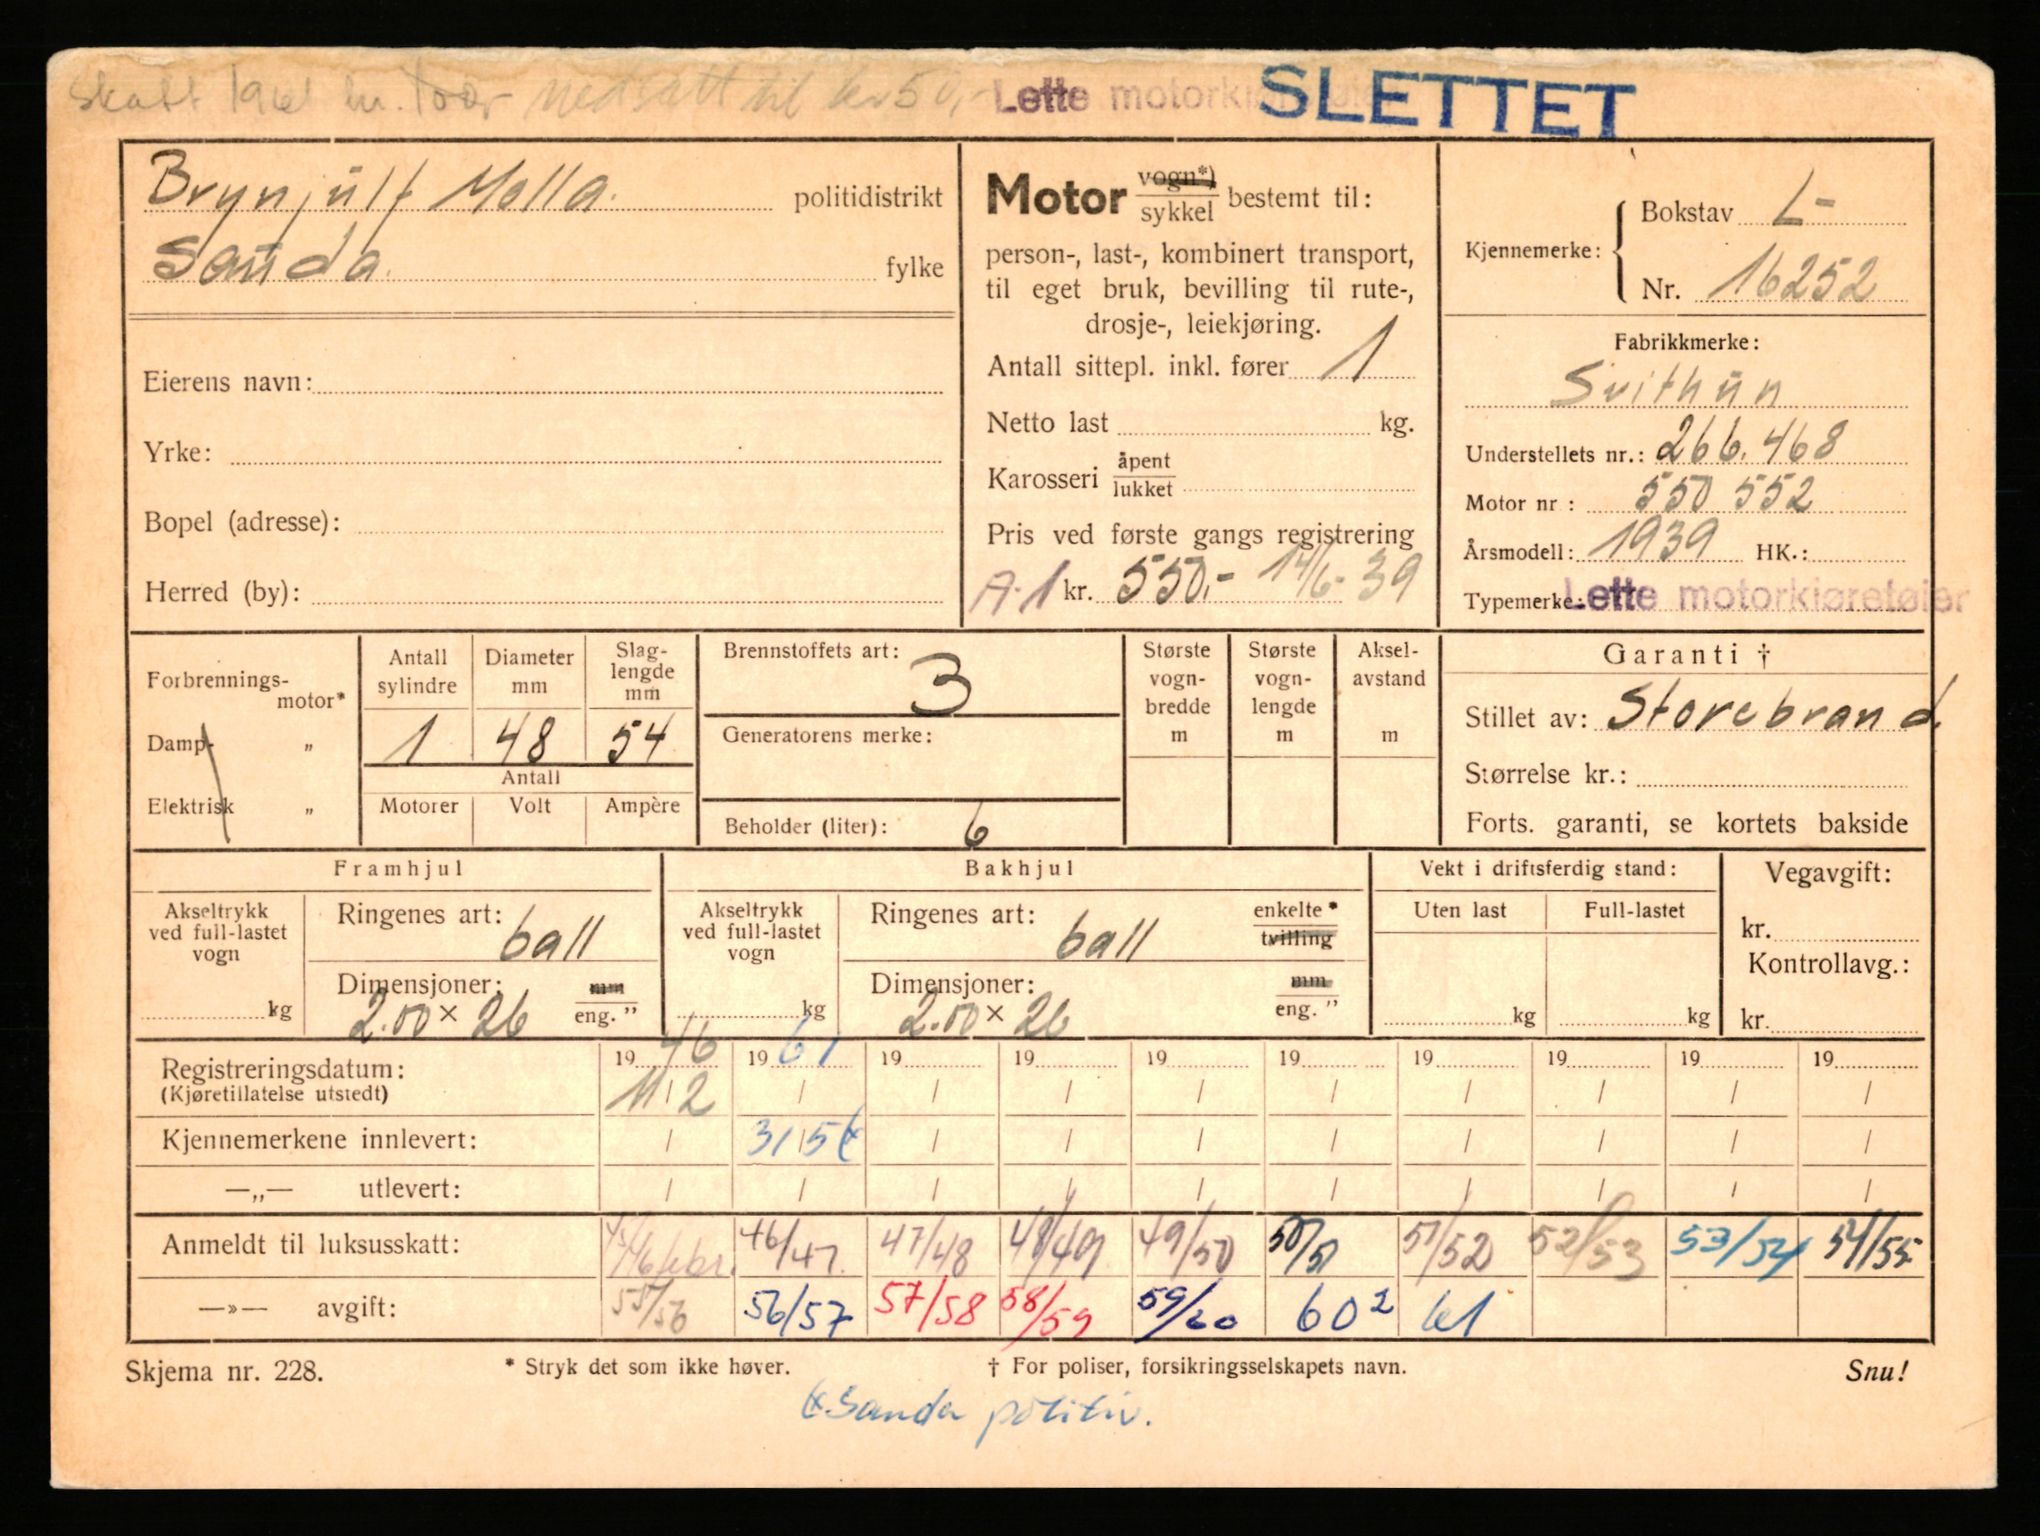 skatt 1961 kr. 100,- nedsatt til kr 50,- Lette motorkjøretøier SLETTET
Brynjulf Molla. politidistrikt
Sauda. fylke
Eierens navn:
Yrke:
Bopel (adresse):
Herred (by):
Motor vogn*) sykkel bestemt til:
person-, last-, kombinert transport,
til eget bruk, bevilling til rute-,
drosje-, leiekjøring.
Antall sittepl. inkl. fører 1
Netto last kg.
Karosseri åpent lukket
Pris ved første gangs registrering
A-1 kr. 550,- 14/6-39
Kjennemerke: Bokstav L-
Nr. 16252
Fabrikkmerke:
Svithun
Understellets nr.: 266.468
Motor nr: 550 552
Årsmodell: 1939 HK.:
Typemerke: Lette motorkjøretøier
Forbrennings-motor*
Damp- „
Elektrisk „
Antall sylindre Diameter mm Slag-lengde mm
1 48 54
Antall
Motorer Volt Ampère
Brennstoffets art: 3
Generatorens merke:
Beholder (liter): 6
Største vogn-bredde m
Største vogn-lengde m
Aksel-avstand m
Garanti †
Stillet av: Storebrand.
Størrelse kr.:
Forts. garanti, se kortets bakside
Framhjul
Akseltrykk ved full-lastet vogn kg
Ringenes art: ball
Dimensjoner: mm
2.00 × 26 eng. ”
Bakhjul
Akseltrykk ved full-lastet vogn kg
Ringenes art: ball enkelte* tvilling
Dimensjoner: mm
2.00 × 26 eng. ”
Vekt i driftsferdig stand:
Uten last Full-lastet
kg kg
Vegavgift:
kr.
Kontrollavg.:
kr.
Registreringsdatum: 1946 1961 19 19 19 19 19 19 19 19
(Kjøretillatelse utstedt) 11/2 / / / / / / / / /
Kjennemerkene innlevert: / 31/5 / / / / / / / /
—„— utlevert: / / / / / / / / / /
Anmeldt til luksusskatt: 45/46 febr. 46/47. 47/48 48/49 49/50 50/51 51/52 52/53 53/54 54/55
—»— avgift: 55/56 56/57 57/58 58/59 59/60 60² 61
Skjema nr. 228. * Stryk det som ikke høver. † For poliser, forsikringsselskapets navn. Snu!
Sauda politiv.